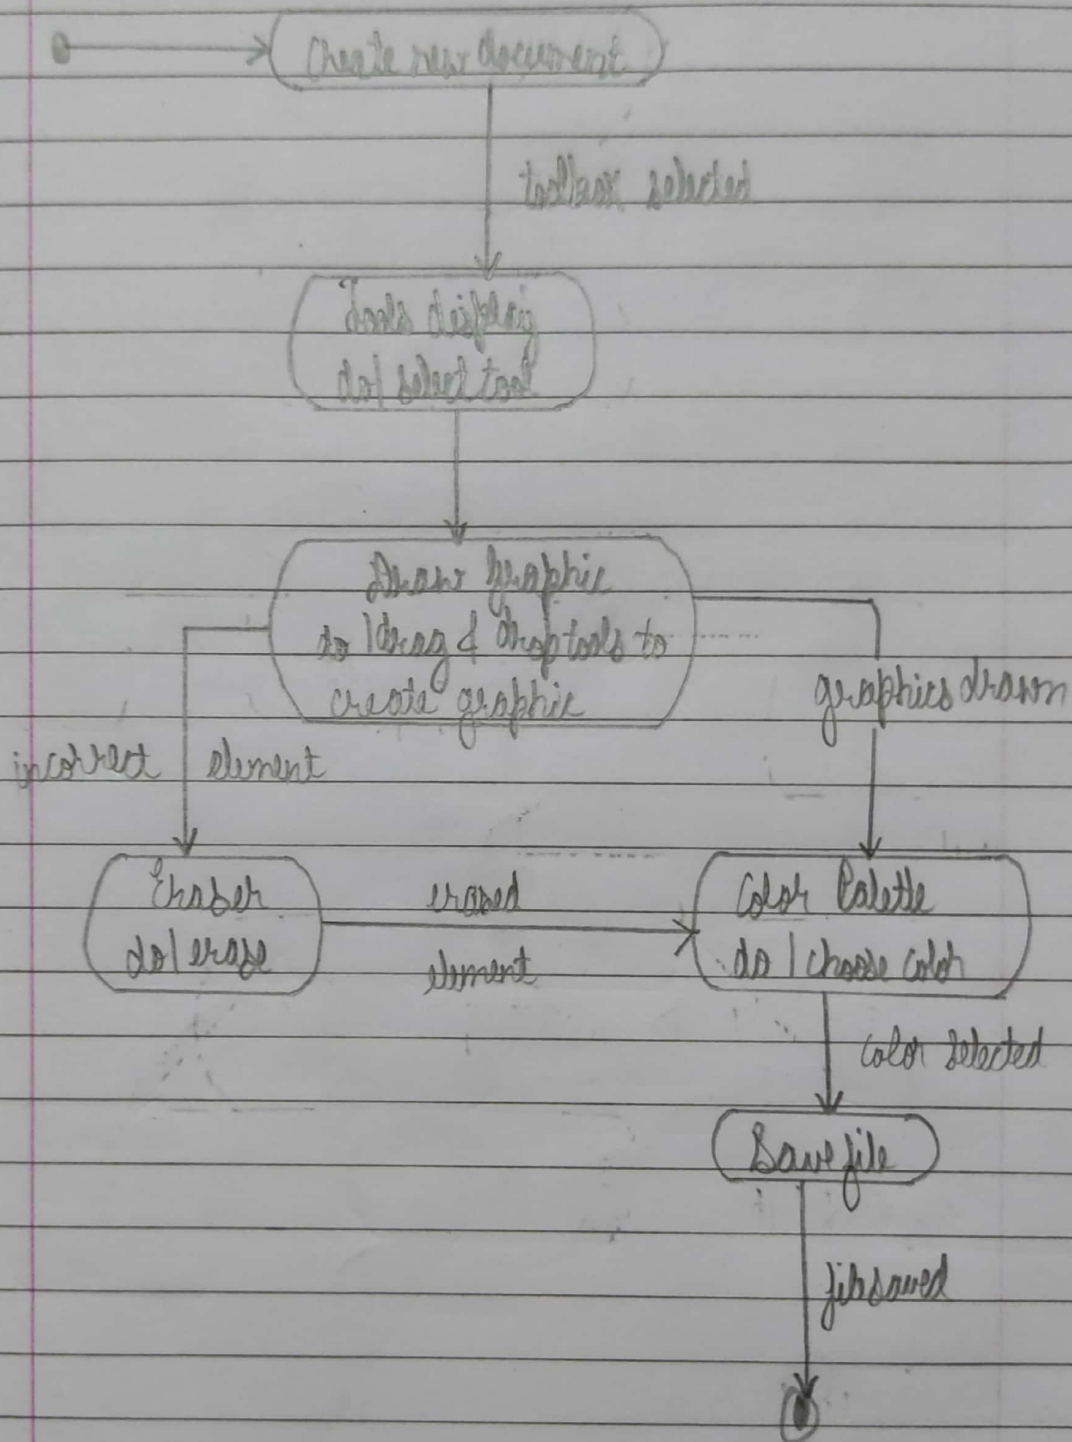 Create new document
toolbox selected
Tools display
do/ select tool
Draw Graphic
do / drag & drop tools to
create graphic
graphics drawn
incorrect element
Eraser
do/ erase
erased
element
Color Palette
do / choose color
color selected
Save file
file saved